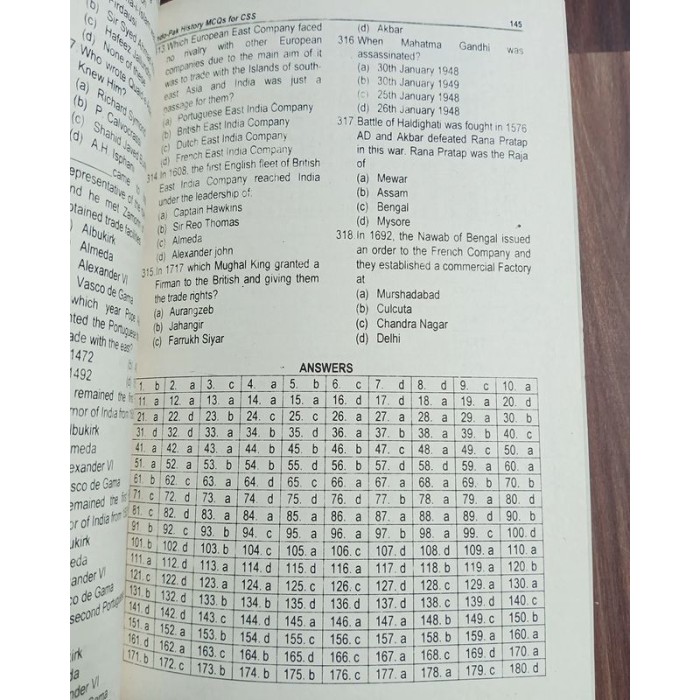 Indo-Pak History MCQs for CSS
145
313.Which European East Company faced
no rivalry with other European
companies due to the main aim of it
was to trade with the Islands of south-
east Asia and India was just a
passage for them?
(a) Portuguese East India Company
(b) British East India Company
(c) Dutch East India Company
(d) French East India Company
314.In 1608, the first English fleet of British
East India Company reached India
under the leadership of.
(a) Captain Hawkins
(b) Sir Reo Thomas
(c) Almeda
(d) Alexander john
315.In 1717 which Mughal King granted a
Firman to the British and giving them
the trade rights?
(a) Aurangzeb
(b) Jahangir
(c) Farrukh Siyar
(d) Akbar
316.When Mahatma Gandhi was
assassinated?
(a) 30th January 1948
(b) 30th January 1949
(c) 25th January 1948
(d) 26th January 1948
317 Battle of Haldighati was fought in 1576
AD and Akbar defeated Rana Pratap
in this war. Rana Pratap was the Raja
of
(a) Mewar
(b) Assam
(c) Bengal
(d) Mysore
318 In 1692, the Nawab of Bengal issued
an order to the French Company and
they established a commercial Factory
at
(a) Murshadabad
(b) Culcuta
(c) Chandra Nagar
(d) Delhi
ANSWERS
1. b 2. a 3. c 4. a 5. b 6. c 7. d 8. d 9. c 10. a
11. a 12. a 13. a 14. a 15. a 16. d 17. d 18. a 19. a 20. d
21. a 22. d 23. b 24. c 25. c 26. a 27. a 28. a 29. a 30. b
31. d 32. d 33. a 34. b 35. d 36. a 37. b 38. a 39. b 40. c
41. a 42. a 43. a 44. b 45. b 46. b 47. c 48. a 49. c 50. a
51. a 52. a 53. b 54. b 55. d 56. b 57. d 58. d 59. a 60. a
61. b 62. c 63. a 64. d 65. c 66. a 67. a 68. a 69. b 70. b
71. c 72. d 73. a 74. d 75. d 76. d 77. b 78. a 79. a 80. d
81. c 82. d 83. a 84. a 85. a 86. a 87. a 88. a 89. d 90. b
91 b 92. c 93. b 94. c 95. a 96. a 97. b 98. a 99. c 100. d
101. b 102. d 103. b 104. c 105. a 106. c 107. d 108. d 109. a 110. a
111. a 112. d 113. a 114. d 115. d 116. a 117. d 118. b 119. a 120. b
121. c 122. d 123. a 124. a 125. c 126. c 127. d 128. c 129. a 130. a
131. b 132. d 133. b 134. b 135. d 136. d 137. d 138. c 139. d 140. c
141. d 142. d 143. c 144. d 145. a 146. a 147. a 148. b 149. c 150. b
151. a 152. a 153. b 154. d 155. c 156. c 157. b 158. b 159. a 160. a
161. d 162. c 163. c 164. b 165. d 166. c 167. a 168. c 169. d 170. a
171. b 172. c 173. b 174. b 175. b 176. c 177. a 178. a 179. c 180. d
Pirdausi
(b) Sir Syed
(c) Hafeez
(d) None of these
Who wrote
Knew Him?
(a) Richard
(b) P. Calvocoressi
(c) Shahid Javed
(d) A.H. Isphani
came
representative of the
and he met Zamorin
obtained trade facilities
Albukirk
Almeda
Alexander VI
Vasco de Gama
which year Pope
the Portuguese
with the east?
1472
1492
remained the
of India from
Alexander VI
Vasco de Gama
remained the
of India from
second